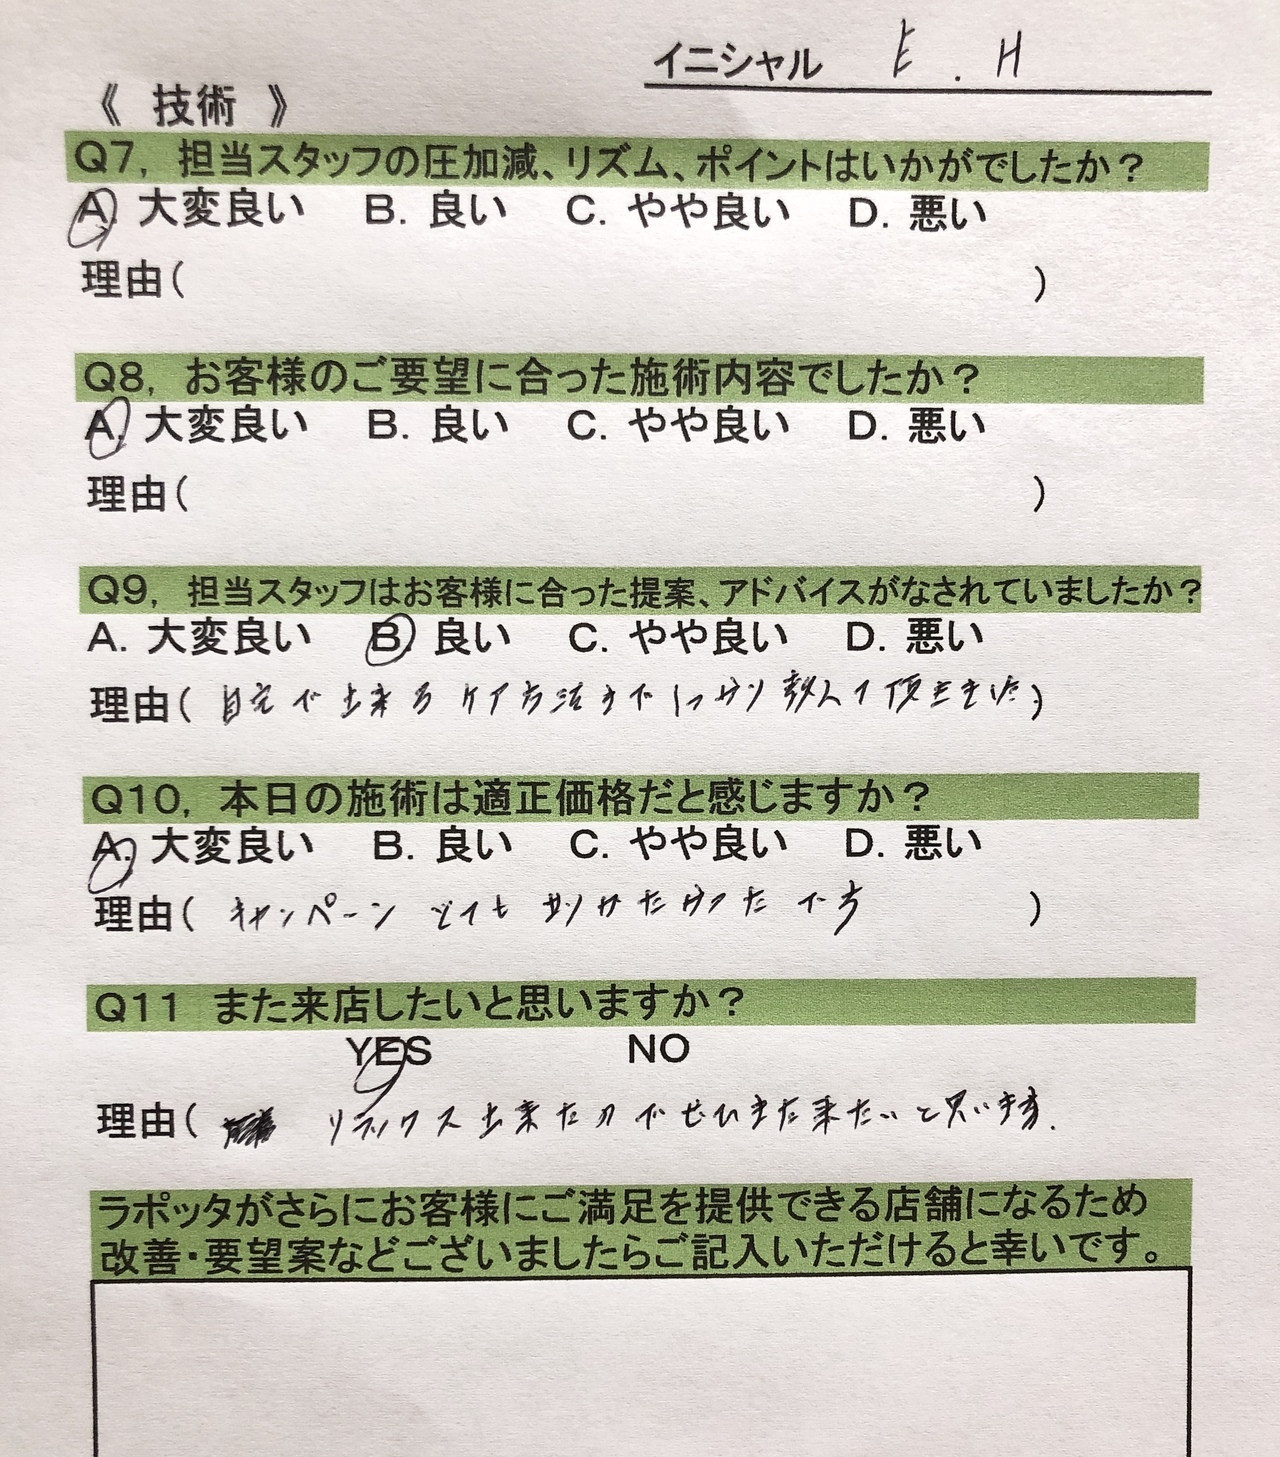 イニシャル E . H
《 技術 》
Q7, 担当スタッフの圧加減、リズム、ポイントはいかがでしたか？
A. 大変良い B. 良い C. やや良い D. 悪い
理由( )
Q8, お客様のご要望に合った施術内容でしたか？
A. 大変良い B. 良い C. やや良い D. 悪い
理由( )
Q9, 担当スタッフはお客様に合った提案、アドバイスがなされていましたか？
A. 大変良い B. 良い C. やや良い D. 悪い
理由( 自宅で出来るケア方法まで しっかり教えて頂きました )
Q10, 本日の施術は適正価格だと感じますか？
A. 大変良い B. 良い C. やや良い D. 悪い
理由( キャンペーン とても ありがたかった です )
Q11 また来店したいと思いますか？
YES NO
理由( リラックス出来たので ぜひまた来たいと思います.
ラポッタがさらにお客様にご満足を提供できる店舗になるため
改善・要望案などございましたらご記入いただけると幸いです。